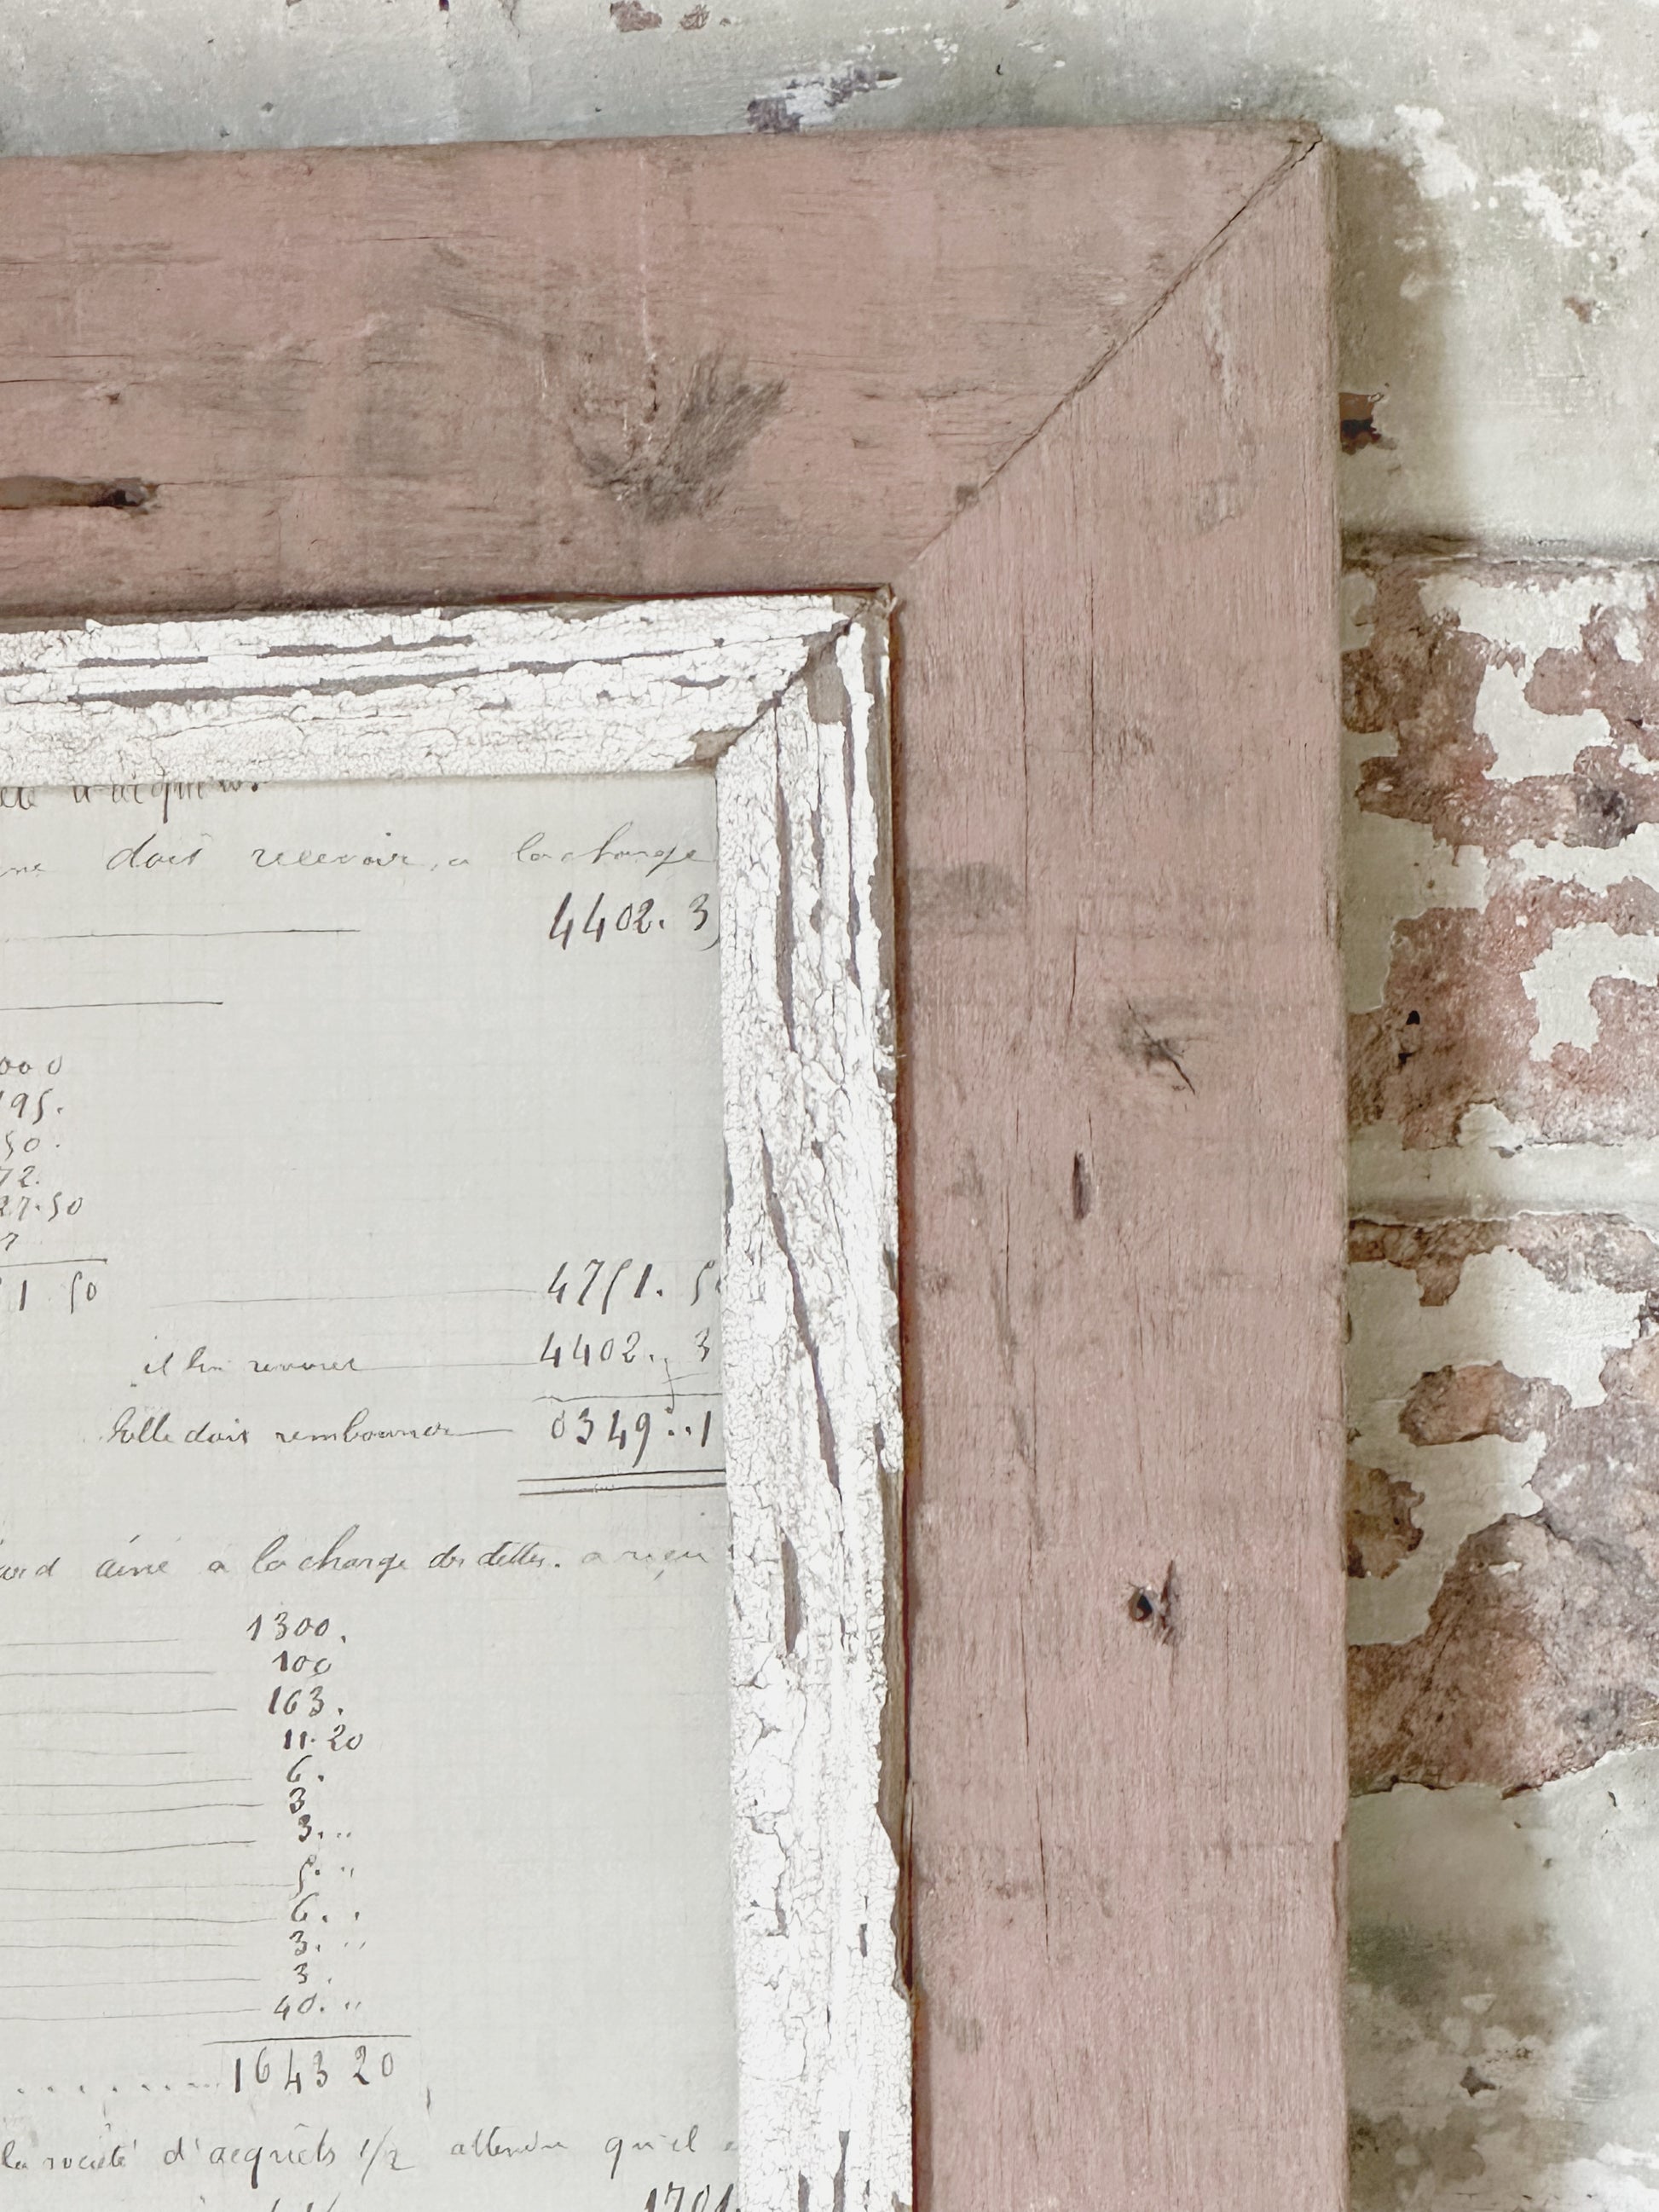 doit recevoir, a la charge
4402. 3
000
195.
50.
72.
27.50
7
1 50
4751. 5
il lui revient 4402. 3
Selle doit rembourser 0349..1
ainé a la charge des dettes. a reçu
1300.
100
163.
11.20
6.
3
3. "
5. "
6. .
3. "
3.
40. "
1643 20
la société d'acquêts 1/2 attendu qu'il
1701.